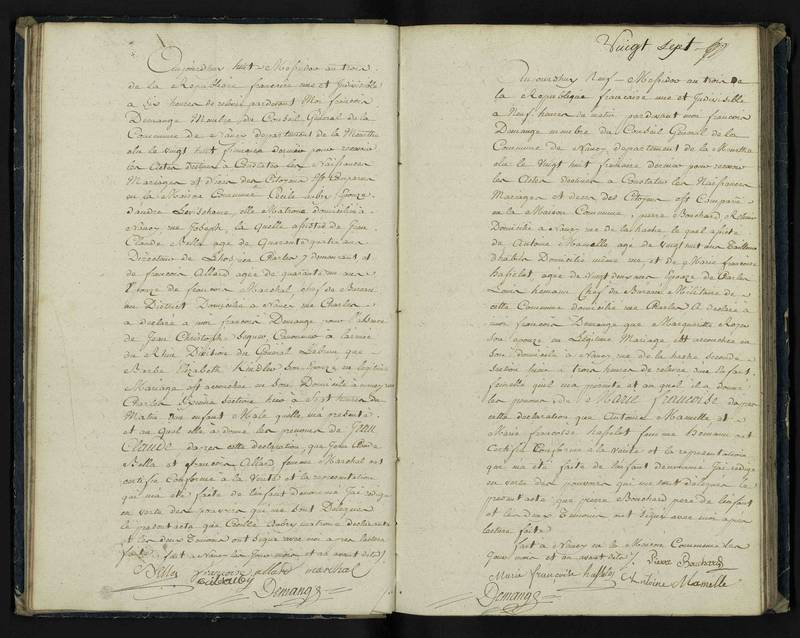 Aujourdhuy huit Messidor an trois
de la République française une et Indivisible
a six heures de relevé pardevant Moi françois
Demange Membre du Conseil Général de la
Commune de Nancy departement de la Meurthe
elu le vingt huit frimaire dernier pour recevoir
les Actes destinés a Constater les Naissances
Mariages et Décès des Citoyens est Comparu
en la Maison Commune Cécile aubry Epouze
d'andré Levischane, elle Matrone domiciliée a
Nancy rue Joseph, la quelle assistée de Jean
Claude Bella agé de Quarante quatre ans
Directeur de Lhospice Charles y demeurant et
de françoise Allard agée de quarante un ans
Epouze de françois Marchal chef de Bureau
au District Domiciliée a Nancy rue Charles
a déclaré a moi françois Demange pour l'absence
de Jean Christophe Canonnier à l'armée
du Rhin Division du Général que
Barbe Elizabeth Kindler son Epouze en légitime
Mariage est accouchée en son Domicile a Nancy rue
Charles seconde section hier à sept heures du
Matin d'un enfant Male quelle m'a présenté
et au quel elle a donné les prenoms de Jean
Claude dapres cette déclaration, que Jean Claude
Bella et françoise Allard femme Marchal ont
certifié Conforme à la Vérité et la representation
qui ma été faite de lenfant dénommé Jai redigé
en vertu des pouvoirs qui me sont Delegués
le présent acte que Cécile Aubry matrone declarante
et les deux Temoins ont signé avec moi apres lecture
faite fait a Nancy les Jour mois et an avant dits
Bella françoise allard marchal
Demange
Vingt sept
Aujourdhuy Neuf Messidor an trois de
la République française une et Indivisible
a Neuf heures du matin pardevant moi francois
Demange membre du Conseil Général de la
Commune de Nancy departement de la Meurthe
elu le Vingt huit frimaire dernier pour recevoir
les Actes destinés a Constater les Naissances
Mariages et deces des Citoyens est Comparu
en la Maison Commune, pierre Bouchard
Domicilié a Nancy rue de la hache le quel assisté
de Antoine Mamelle agé de vingt huit ans Tailleur
dhabits Domicilié même rue et de Marie françoise
hasselot agée de Vingt deux ans Epouze de Charles
Louis hemann Chef du Bureau Militaire de
cette Commune domiciliée rue Charles A déclaré a
moi françois Demange que Marguerite
son epouze en Légitime Mariage est accouchée en
son domicile a Nancy rue de la hache, seconde
section hier a trois heures de relevée d'un Enfant
femelle quel ma présenté et au quel il a donné
les prenoms de Marie francoise dapres
cette declaration que Antoine Mamelle et
Marie françoise hasselot femme hemann ont
Certifié Conforme a la Vérité et la représentation
qui ma été faite de lenfant denommé Jai redigé
en vertu des pouvoirs qui me sont delegués le
present acte que pierre Bouchard pere de lenfant
et les deux Temoins ont signé avec moi apres
lecture faite
fait a Nancy en la Maison Commune les
Jour mois et an avant dits Pierre Bouchard
Marie françoise hasselot Antoine Mamelle
Demange